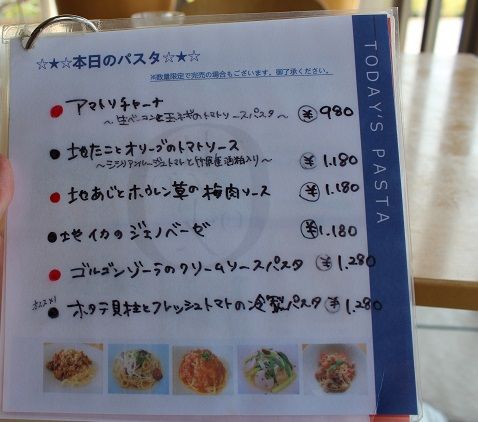 ☆★☆本日のパスタ☆★☆
※数量限定で完売の場合もございます。御了承ください。
TODAY'S PASTA
● アマトリチャーナ ¥980
～生ベーコンと玉ネギのトマトソースパスタ～
● 地たことオリーブのトマトソース ¥1.180
～シシリアンルージュトマトと竹泉産酒粕入り～
● 地あじとホウレン草の梅肉ソース ¥1.180
● 地イカのジェノベーゼ ¥1.180
● ゴルゴンゾーラのクリームソースパスタ ¥1.280
● ホタテ貝柱とフレッシュトマトの冷製パスタ ¥1.280